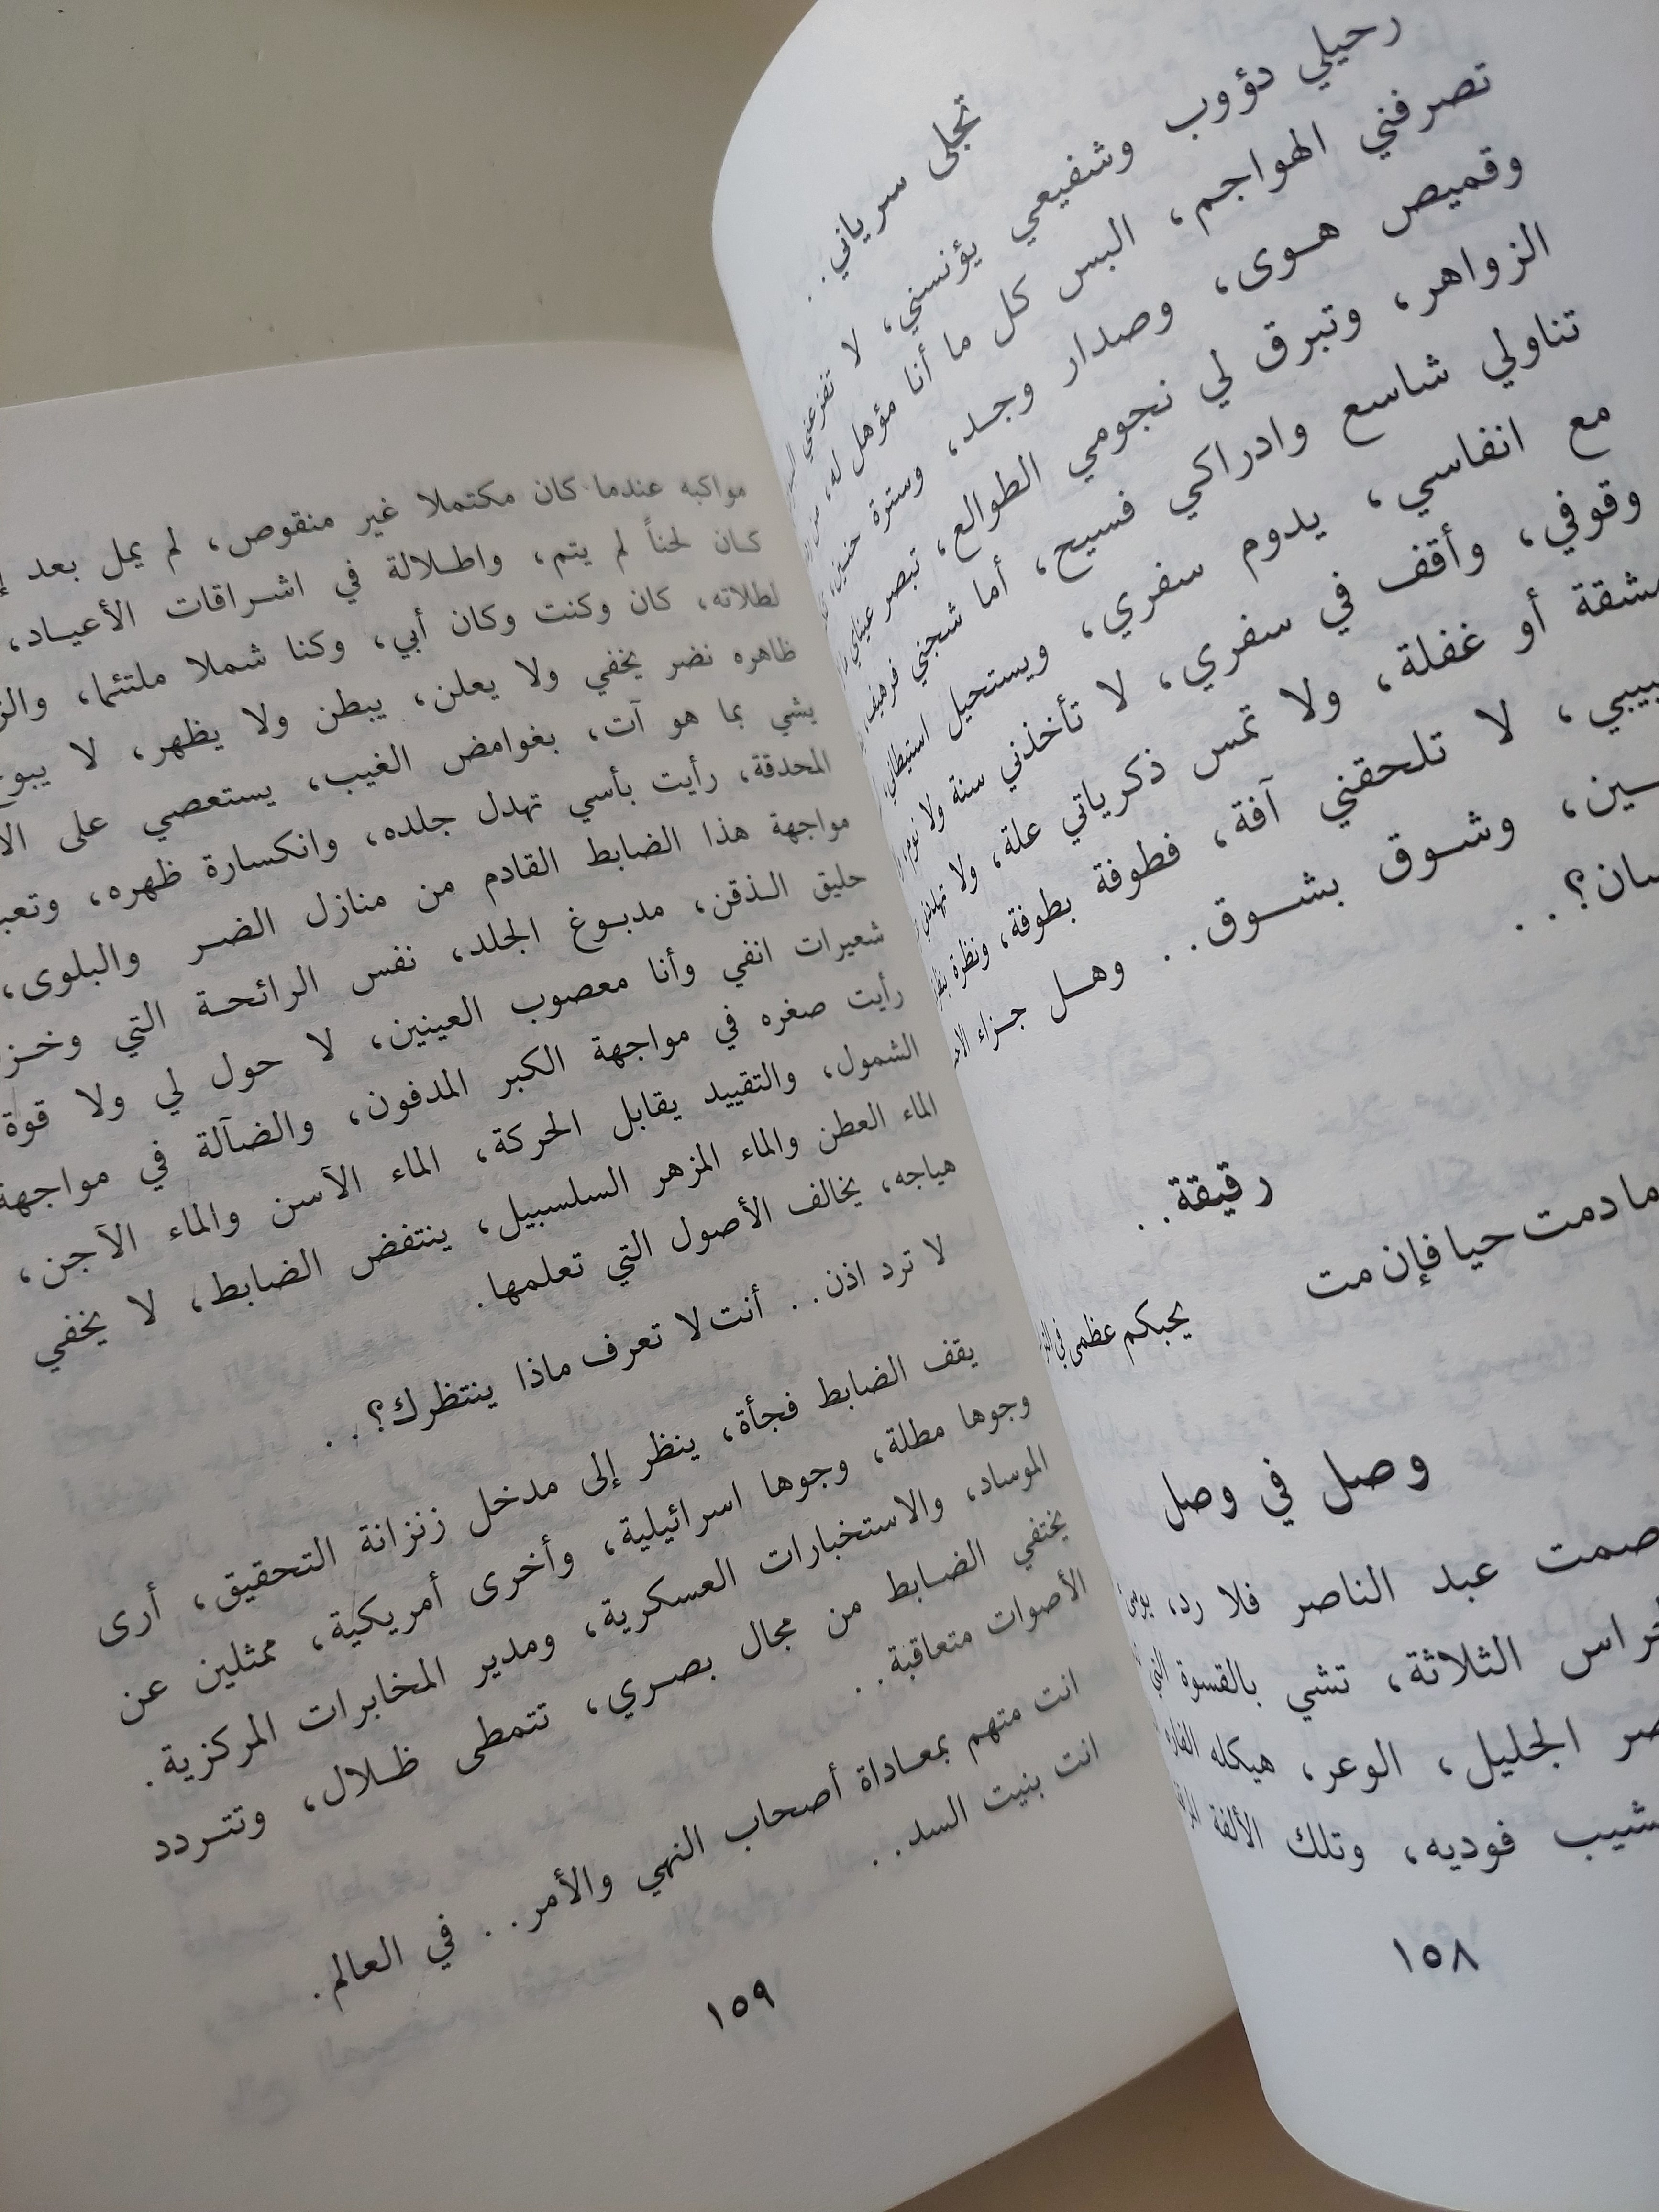 تجلى سرياني..
رحيلي دؤوب وشفيعي يؤنسني، لا تفزعني
تصرفني الهواجم، البس كل ما أنا مؤهل له، من
وقميص هوى، وصدار وجد، وسترة حنين،
الزواهر، وتبرق لي نجومي الطوالع، تبصر عيناي
تناولي شاسع وادراكي فسيح، أما شجني فرهيف،
مع انفاسي، يدوم سفري، ويستحيل استيطاني،
وقوفي، وأقف في سفري، لا تأخذني سنة ولا نوم،
مشقة أو غفلة، ولا تمس ذكرياتي علة، ولا
لا تلحقني آفة، فطوفة بطوفة، ونظرة
وشوق بشوق.. وهل جزاء
رقيقة..
ما دمت حيا فإن مت
يحبكم عظمي في
وصل في وصل
صمت عبد الناصر فلا رد،
الثلاثة، تشي بالقسوة التي
الجليل، الوعر، هيكله
فوديه، وتلك الألفة
١٥٨
مواكبه عندما كان مكتملا غير منقوص، لم يمل بعد
كان لحناً لم يتم، واطلالة في اشراقات الأعياد،
لطلاته، كان وكنت وكان أبي، وكنا شملا ملتئما،
ظاهره نضر يخفي ولا يعلن، يبطن ولا يظهر، لا
يشي بما هو آت، بغوامض الغيب، يستعصي على
المحدقة، رأيت بأسي تهدل جلده، وانكسارة ظهره،
مواجهة هذا الضابط القادم من منازل الضر والبلوى،
حليق الذقن، مدبوغ الجلد، نفس الرائحة التي
شعيرات انفي وأنا معصوب العينين، لا حول لي ولا قوة
رأيت صغره في مواجهة الكبر المدفون، والضآلة في مواجهة
الشمول، والتقييد يقابل الحركة، الماء الآسن والماء الآجن،
الماء العطن والماء المزهر السلسبيل، ينتفض الضابط، لا يخفي
هياجه، يخالف الأصول التي تعلمها.
لا ترد اذن.. أنت لا تعرف ماذا ينتظرك؟..
يقف الضابط فجأة، ينظر إلى مدخل زنزانة التحقيق، أرى
وجوها مطلة، وجوها اسرائيلية، وأخرى أمريكية، ممثلين عن
الموساد، والاستخبارات العسكرية، ومدير المخابرات المركزية.
يختفي الضابط من مجال بصري، تتمطى ظلال، وتتردد
الأصوات متعاقبة..
انت متهم بمعاداة أصحاب النهي والأمر.. في العالم.
انت بنيت السد..
١٥٩